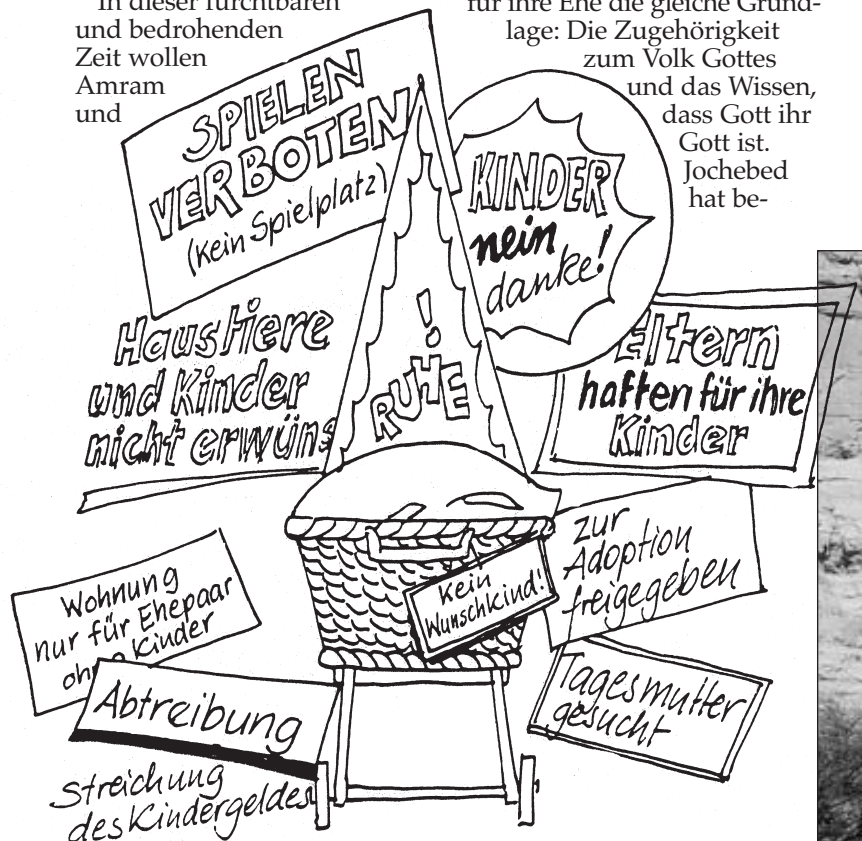 In dieser furchtbaren
und bedrohenden
Zeit wollen
Amram
und
für ihre Ehe die gleiche Grund-
lage: Die Zugehörigkeit
zum Volk Gottes
und das Wissen,
dass Gott ihr
Gott ist.
Jochebed
hat be-
SPIELEN
VERBOTEN
(Kein Spielplatz)
KINDER
nein
danke!
Haustiere
und Kinder
nicht erwüns
!
RUHE
Eltern
haften für ihre
Kinder
zur
Adoption
freigegeben
Kein
Wunschkind!
Wohnung
nur für Ehepaar
ohne Kinder
Abtreibung
Tagesmutter
gesucht
Streichung
des Kindergeldes